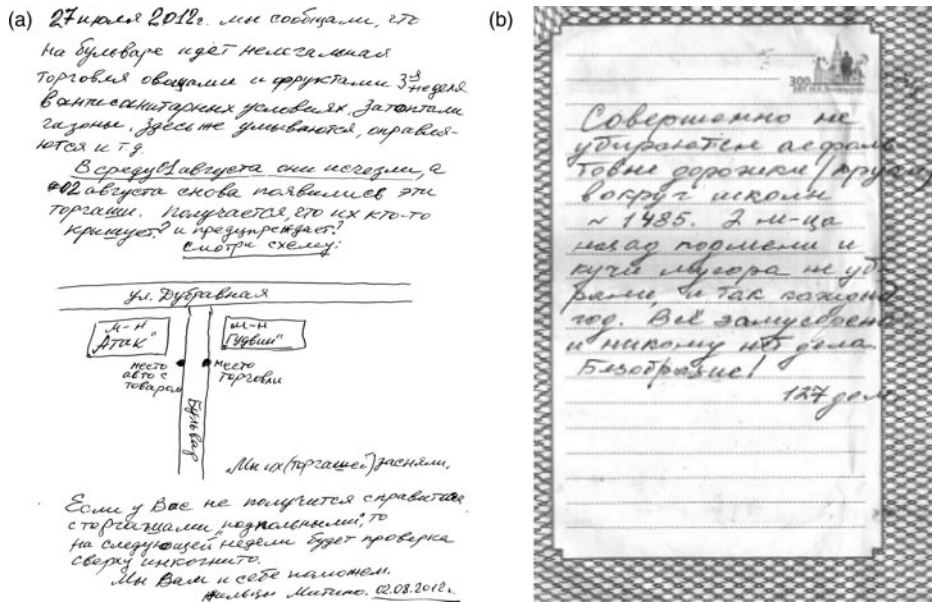 (a)
27 июля 2012г. мы сообщали, что
на бульваре идёт нелегальная
торговля овощами и фруктами 3-я неделя
в антисанитарных условиях. Затоптали
газоны. Здесь же умываются, оправля-
ются и т.д.
В среду 01 августа они исчезли, а
02 августа снова появились эти
торгаши. Получается, что их кто-то
крышует? и предупреждает?
смотри схему:
ул. Дубравная
м-н
"Атак"
м-н
"Гудвин"
место
авто с
товаром
место
торговли
Бульвар
Мы их (торгашей) засняли.
Если у Вас не получится справиться
с торгашами "подпольными", то
на следующей недели будет проверка
сверху инкогнито.
Мы Вам и себе поможем.
Жильцы Митино. 02.08.2012г.
(b)
300
Совершенно не
убираются асфаль
товые дорожки (кругом)
вокруг школы
№ 1485. 2 м-ца
назад подмели и
кучи мусора не уб-
рали, и так каждый
год. Всё замусорено
и никому нет дела.
Безобразие!
127 дом